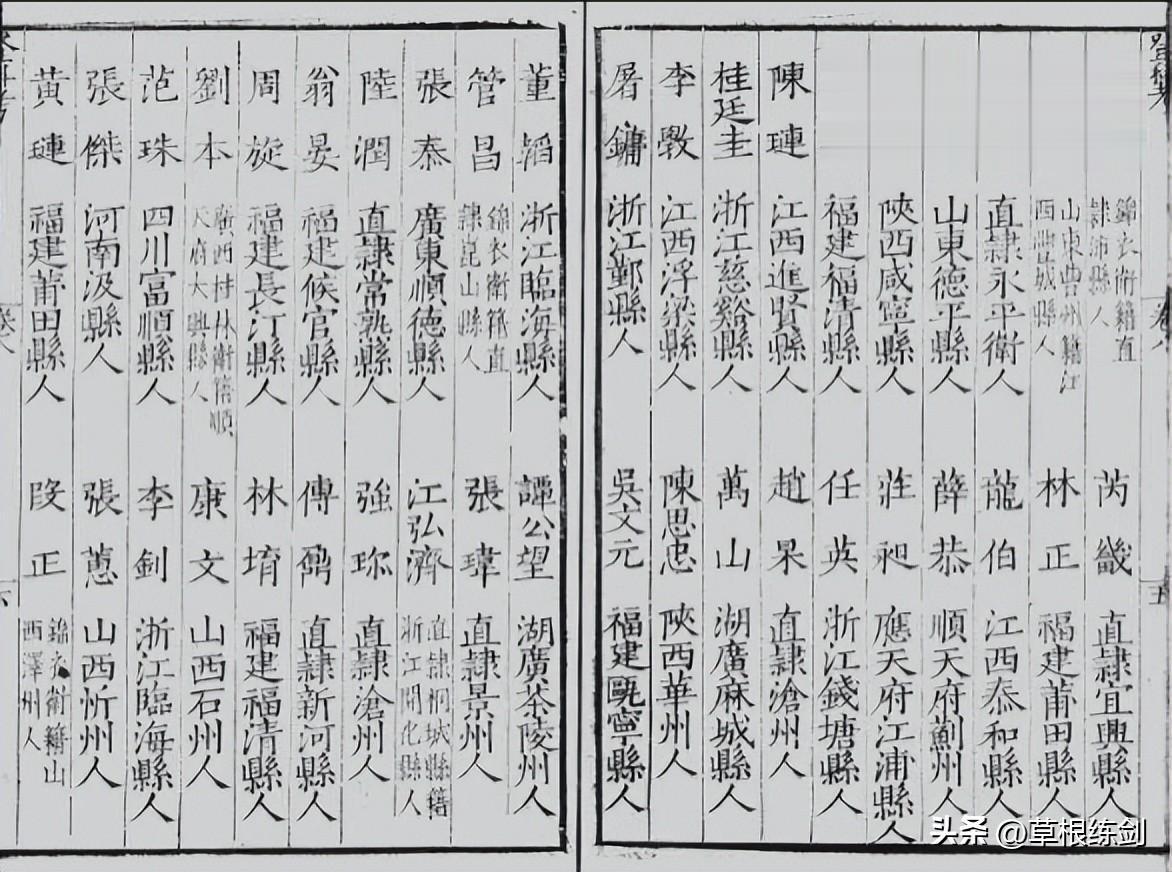 登科考
卷八
五
錦衣衛籍直隷沛縣人 芮畿 直隷宜興縣人
山東曹州籍江西豐城縣人 林正 福建莆田縣人
直隷永平衛人 龍伯 江西泰和縣人
山東德平縣人 薛恭 順天府薊州人
陝西咸寧縣人 莊昶 應天府江浦縣人
福建福清縣人 任英 浙江錢塘縣人
陳璉 江西進賢縣人 趙杲 直隷滄州人
桂廷圭 浙江慈谿縣人 萬山 湖廣麻城縣人
李斆 江西浮梁縣人 陳思忠 陝西華州人
屠鏞 浙江鄞縣人 吳文元 福建甌寧縣人
董韜 浙江臨海縣人 譚公望 湖廣茶陵州人
管昌 錦衣衛籍直隷崑山縣人 張瑋 直隷景州人
張泰 廣東順德縣人 江弘濟 直隷桐城縣籍浙江開化縣人
陸潤 直隷常熟縣人 強珎 直隷滄州人
翁晏 福建候官縣人 傅鼐 直隷新河縣人
周旋 福建長汀縣人 林堉 福建福清縣人
劉本 廣西桂林衛籍順天府大興縣人 康文 山西石州人
范珠 四川富順縣人 李釗 浙江臨海縣人
張傑 河南汲縣人 張蕙 山西忻州人
黃璉 福建莆田縣人 段正 錦衣衛籍山西澤州人
登科考
卷八
六
头条 @草根练剑